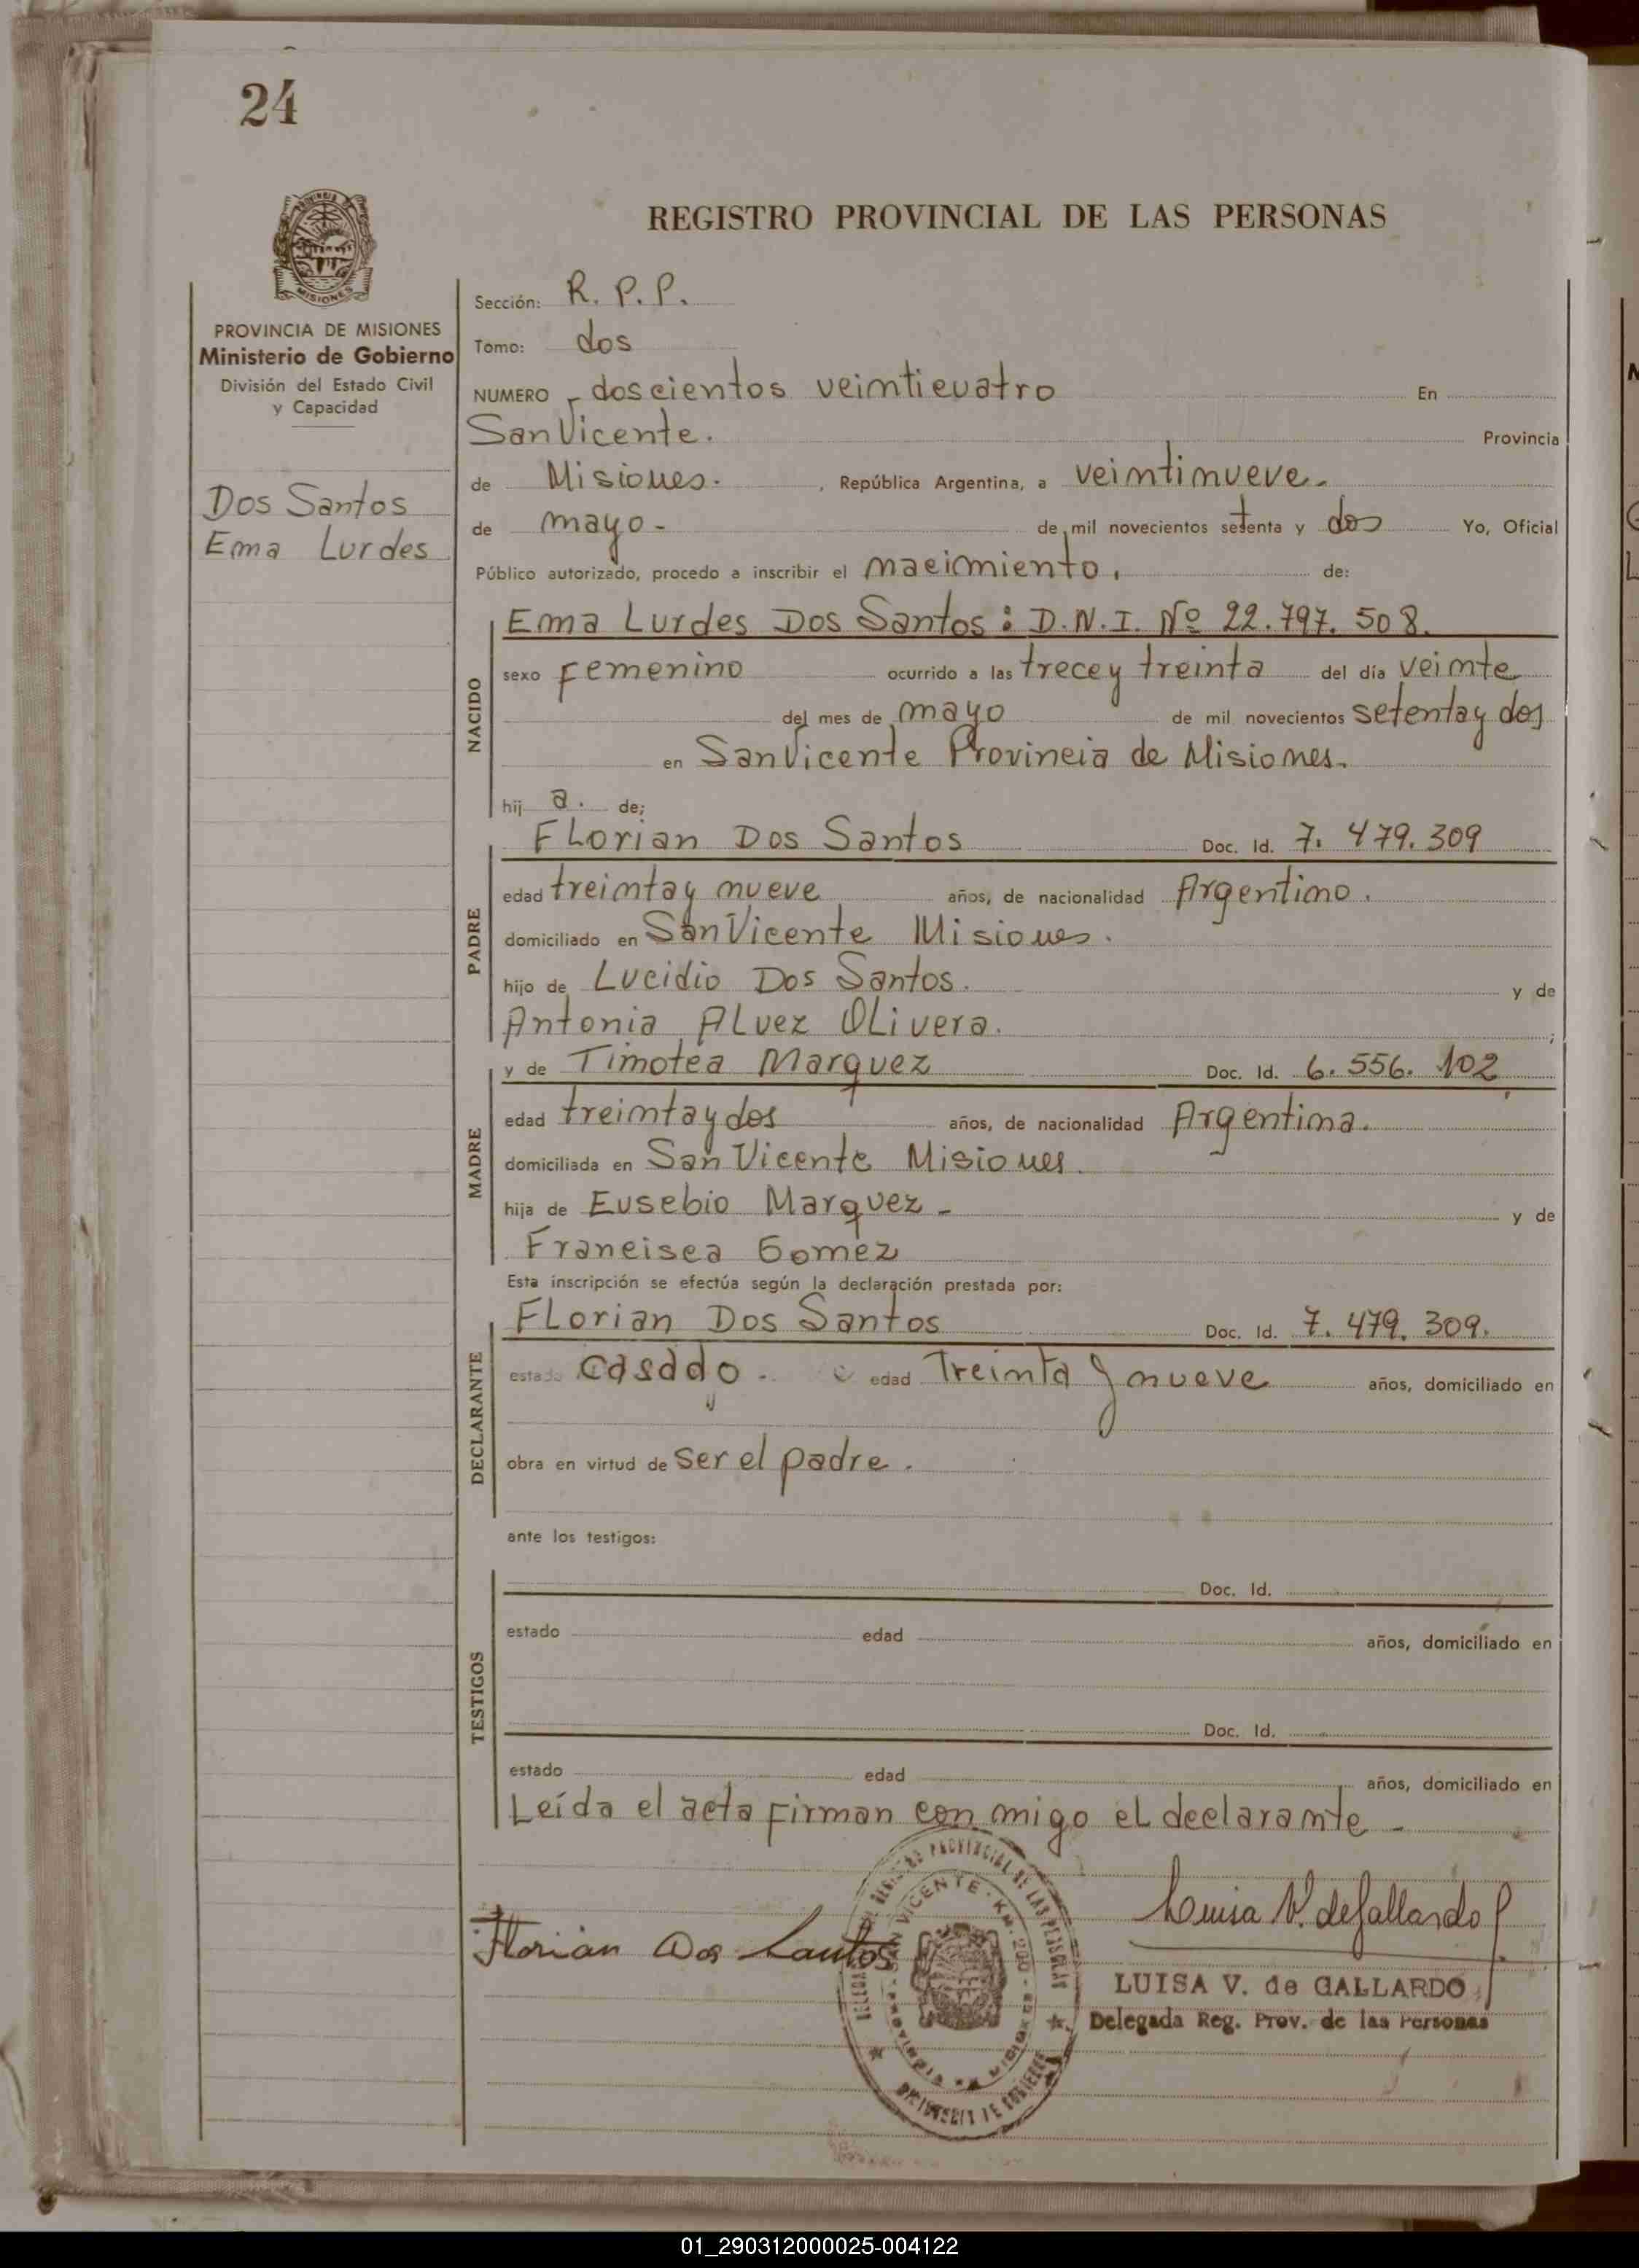 24
REGISTRO PROVINCIAL DE LAS PERSONAS
MISIONES
PROVINCIA DE MISIONES
Ministerio de Gobierno
División del Estado Civil
y Capacidad
Dos Santos
Ema Lurdes
Sección: R. P. P.
Tomo: dos
NUMERO - doscientos veinticuatro En
San Vicente. Provincia
de Misiones. , República Argentina, a veintinueve.
de mayo - de mil novecientos setenta y dos Yo, Oficial
Público autorizado, procedo a inscribir el nacimiento. de:
NACIDO
Ema Lurdes Dos Santos: D.N.I. Nº 22.797.508.
sexo femenino ocurrido a las trece y treinta del día veinte
del mes de mayo de mil novecientos setenta y dos
en San Vicente Provincia de Misiones.
hij a. de;
PADRE
Florian Dos Santos Doc. Id. 7. 479. 309
edad treinta y nueve años, de nacionalidad Argentino.
domiciliado en San Vicente Misiones.
hijo de Lucidio Dos Santos. y de
Antonia Alvez Olivera. ;
MADRE
y de Timotea Marquez Doc. Id. 6. 556. 102
edad treinta y dos años, de nacionalidad Argentina.
domiciliada en San Vicente Misiones.
hija de Eusebio Marquez - y de
Francisca Gomez
Esta inscripción se efectúa según la declaración prestada por:
DECLARANTE
Florian Dos Santos Doc. Id. 7. 479. 309.
estado casado. edad Treinta y nueve años, domiciliado en
obra en virtud de ser el padre.
ante los testigos:
TESTIGOS
Doc. Id.
estado edad años, domiciliado en
Doc. Id.
estado edad años, domiciliado en
Leída el acta firman con migo el declarante -
Florian Dos Santos
Luisa V. de Gallardo
LUISA V. de GALLARDO
Delegada Reg. Prov. de las Personas
REGISTRO PROVINCIAL DE LAS PERSONAS
SAN VICENTE - KM. 200 -
01_290312000025-004122